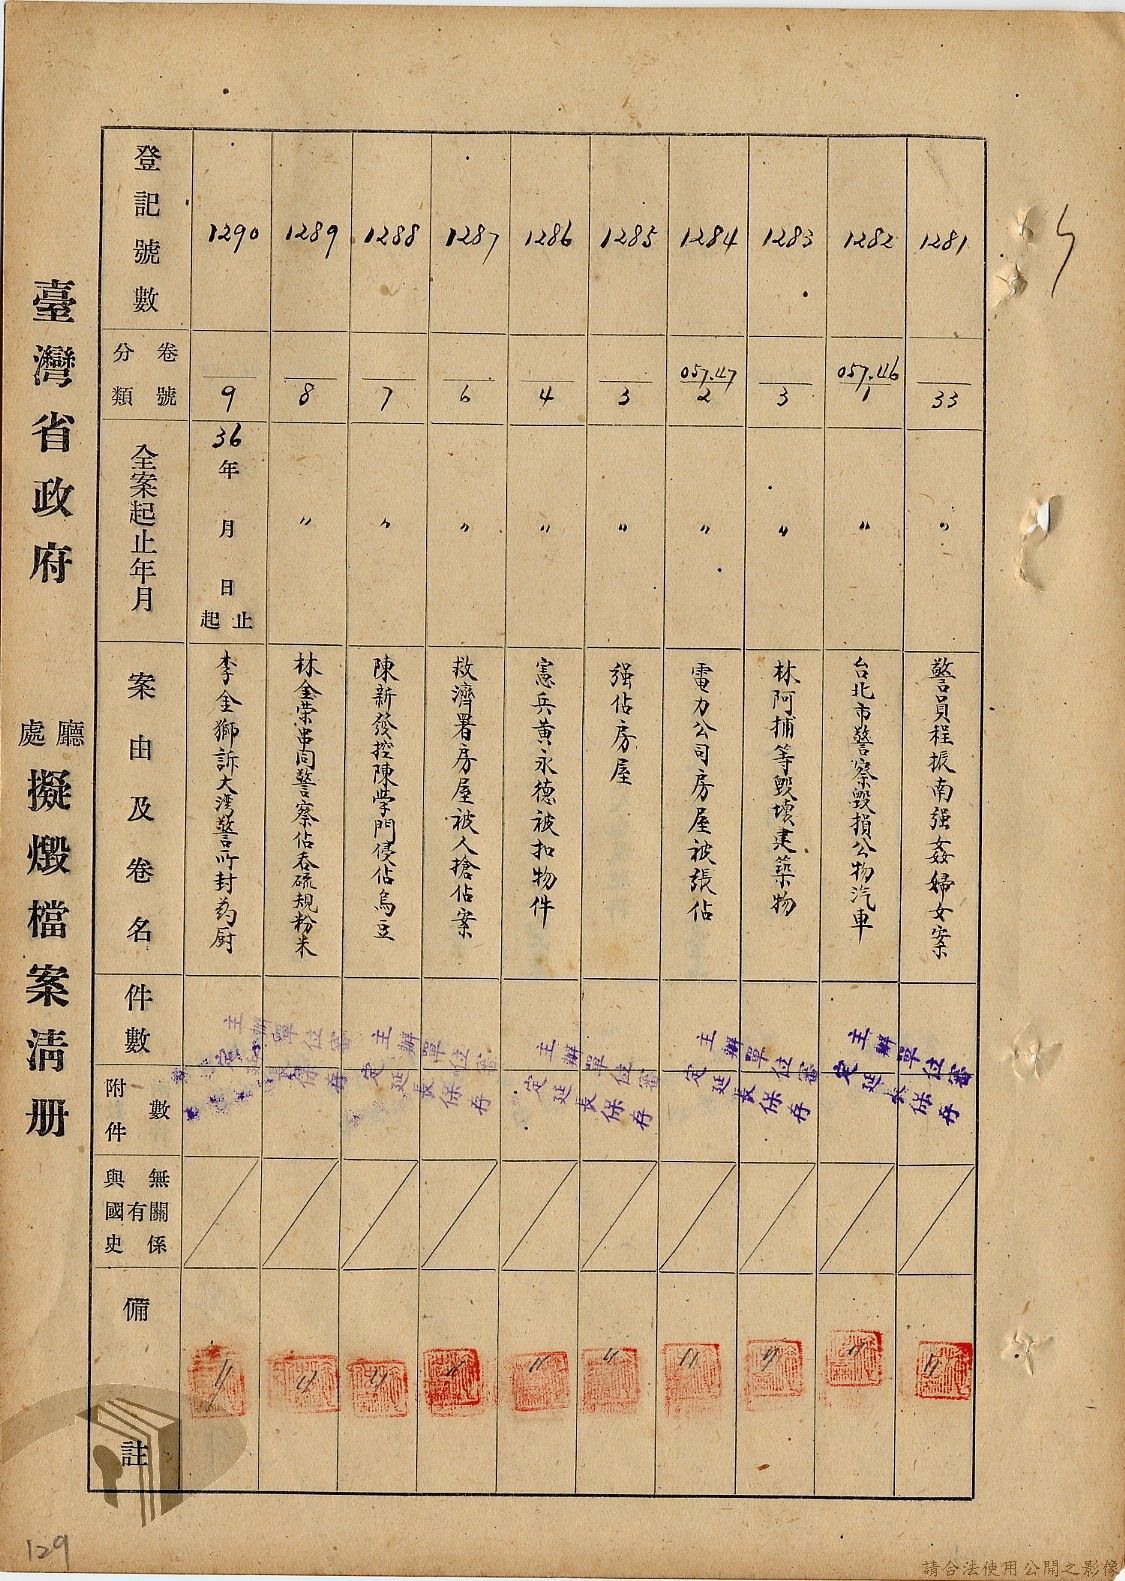 臺灣省政府 廳處 擬燬檔案清册
登記號數
分類 卷號
全案起止年月
案由及卷名
件數
附件 數
與國史 有 無關係
備註
1281
33
〃
警員程振南强姦婦女案
1282
057.46
1
〃
台北市警察毀損公物汽車
1283
3
〃
林阿捕等毀壞建築物
1284
057.47
2
〃
電力公司房屋被張佔
1285
3
〃
强佔房屋
1286
4
〃
憲兵黃永德被扣物件
1287
6
〃
救濟署房屋被人搶佔案
1288
7
〃
陳新發控陳學門侵佔烏豆
1289
8
〃
林金榮串同警察佔吞硫規粉米
1290
9
36年 月 日 起止
李金獅訴大灣警所封药厨
主辦單位審
定延長保存
主辦單位審
定延長保存
主辦單位審
定延長保存
主辦單位審
定延長保存
主辦單位審
129
請合法使用公開之影像